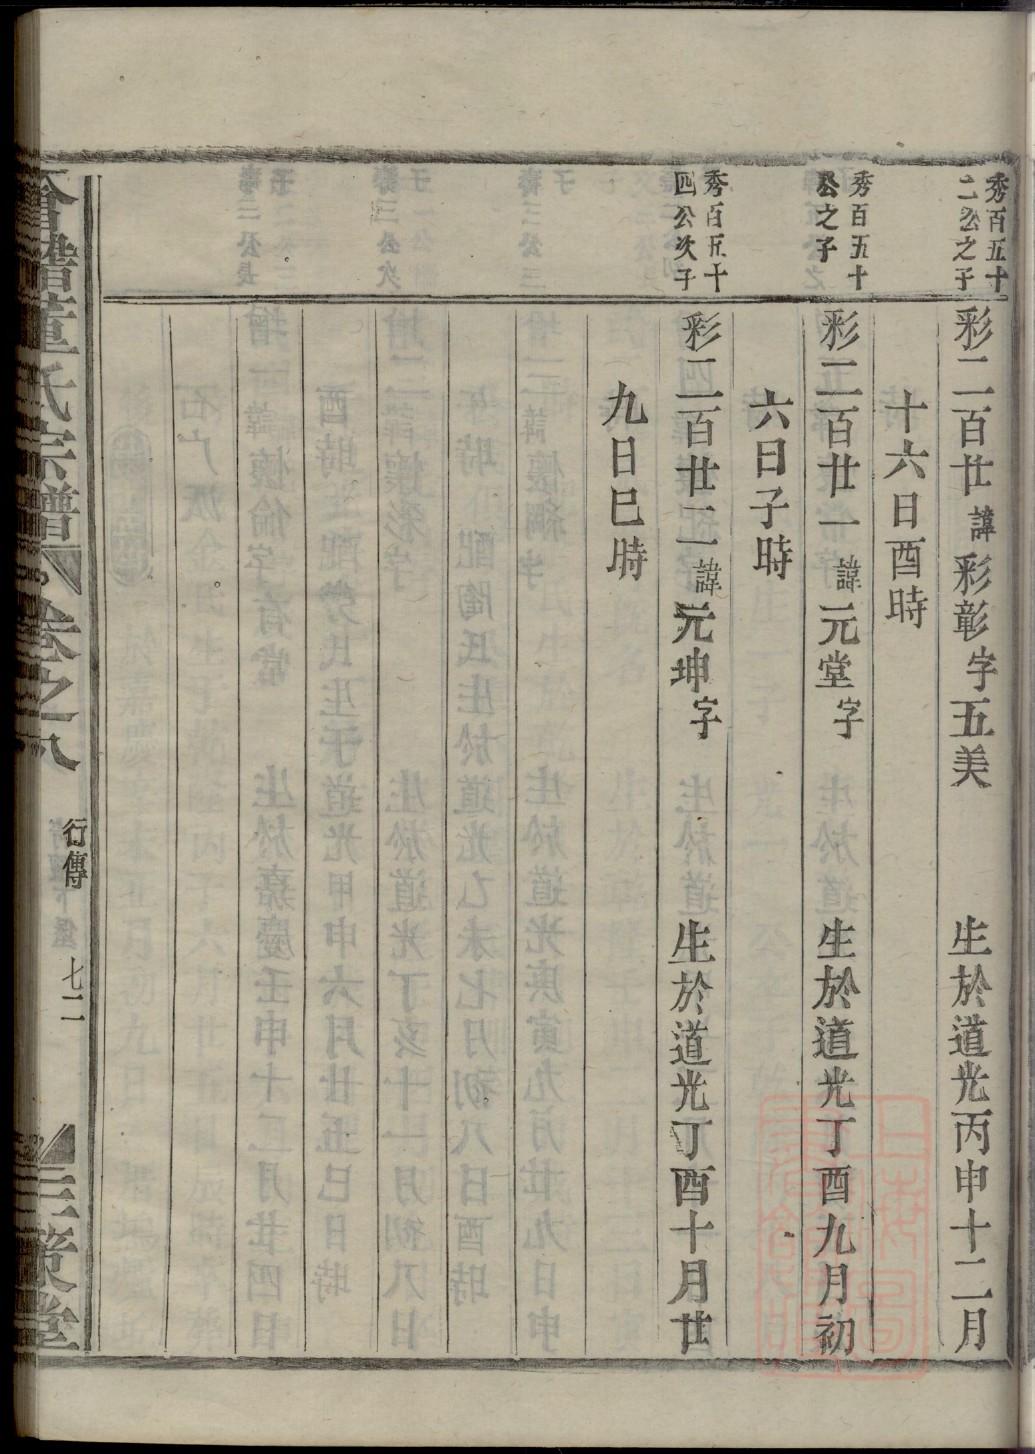 秀百五十
二公之子
彩二百廿諱彩彰字五美 生於道光丙申十二月
十六日酉時
秀百五十
公之子
彩二百廿一諱元堂字 生於道光丁酉九月初
六日子時
秀百五十
四公次子
彩二百廿二諱元坤字 生於道光丁酉十月廿
九日巳時
董氏宗譜 卷之八 行傳 七二 三策堂